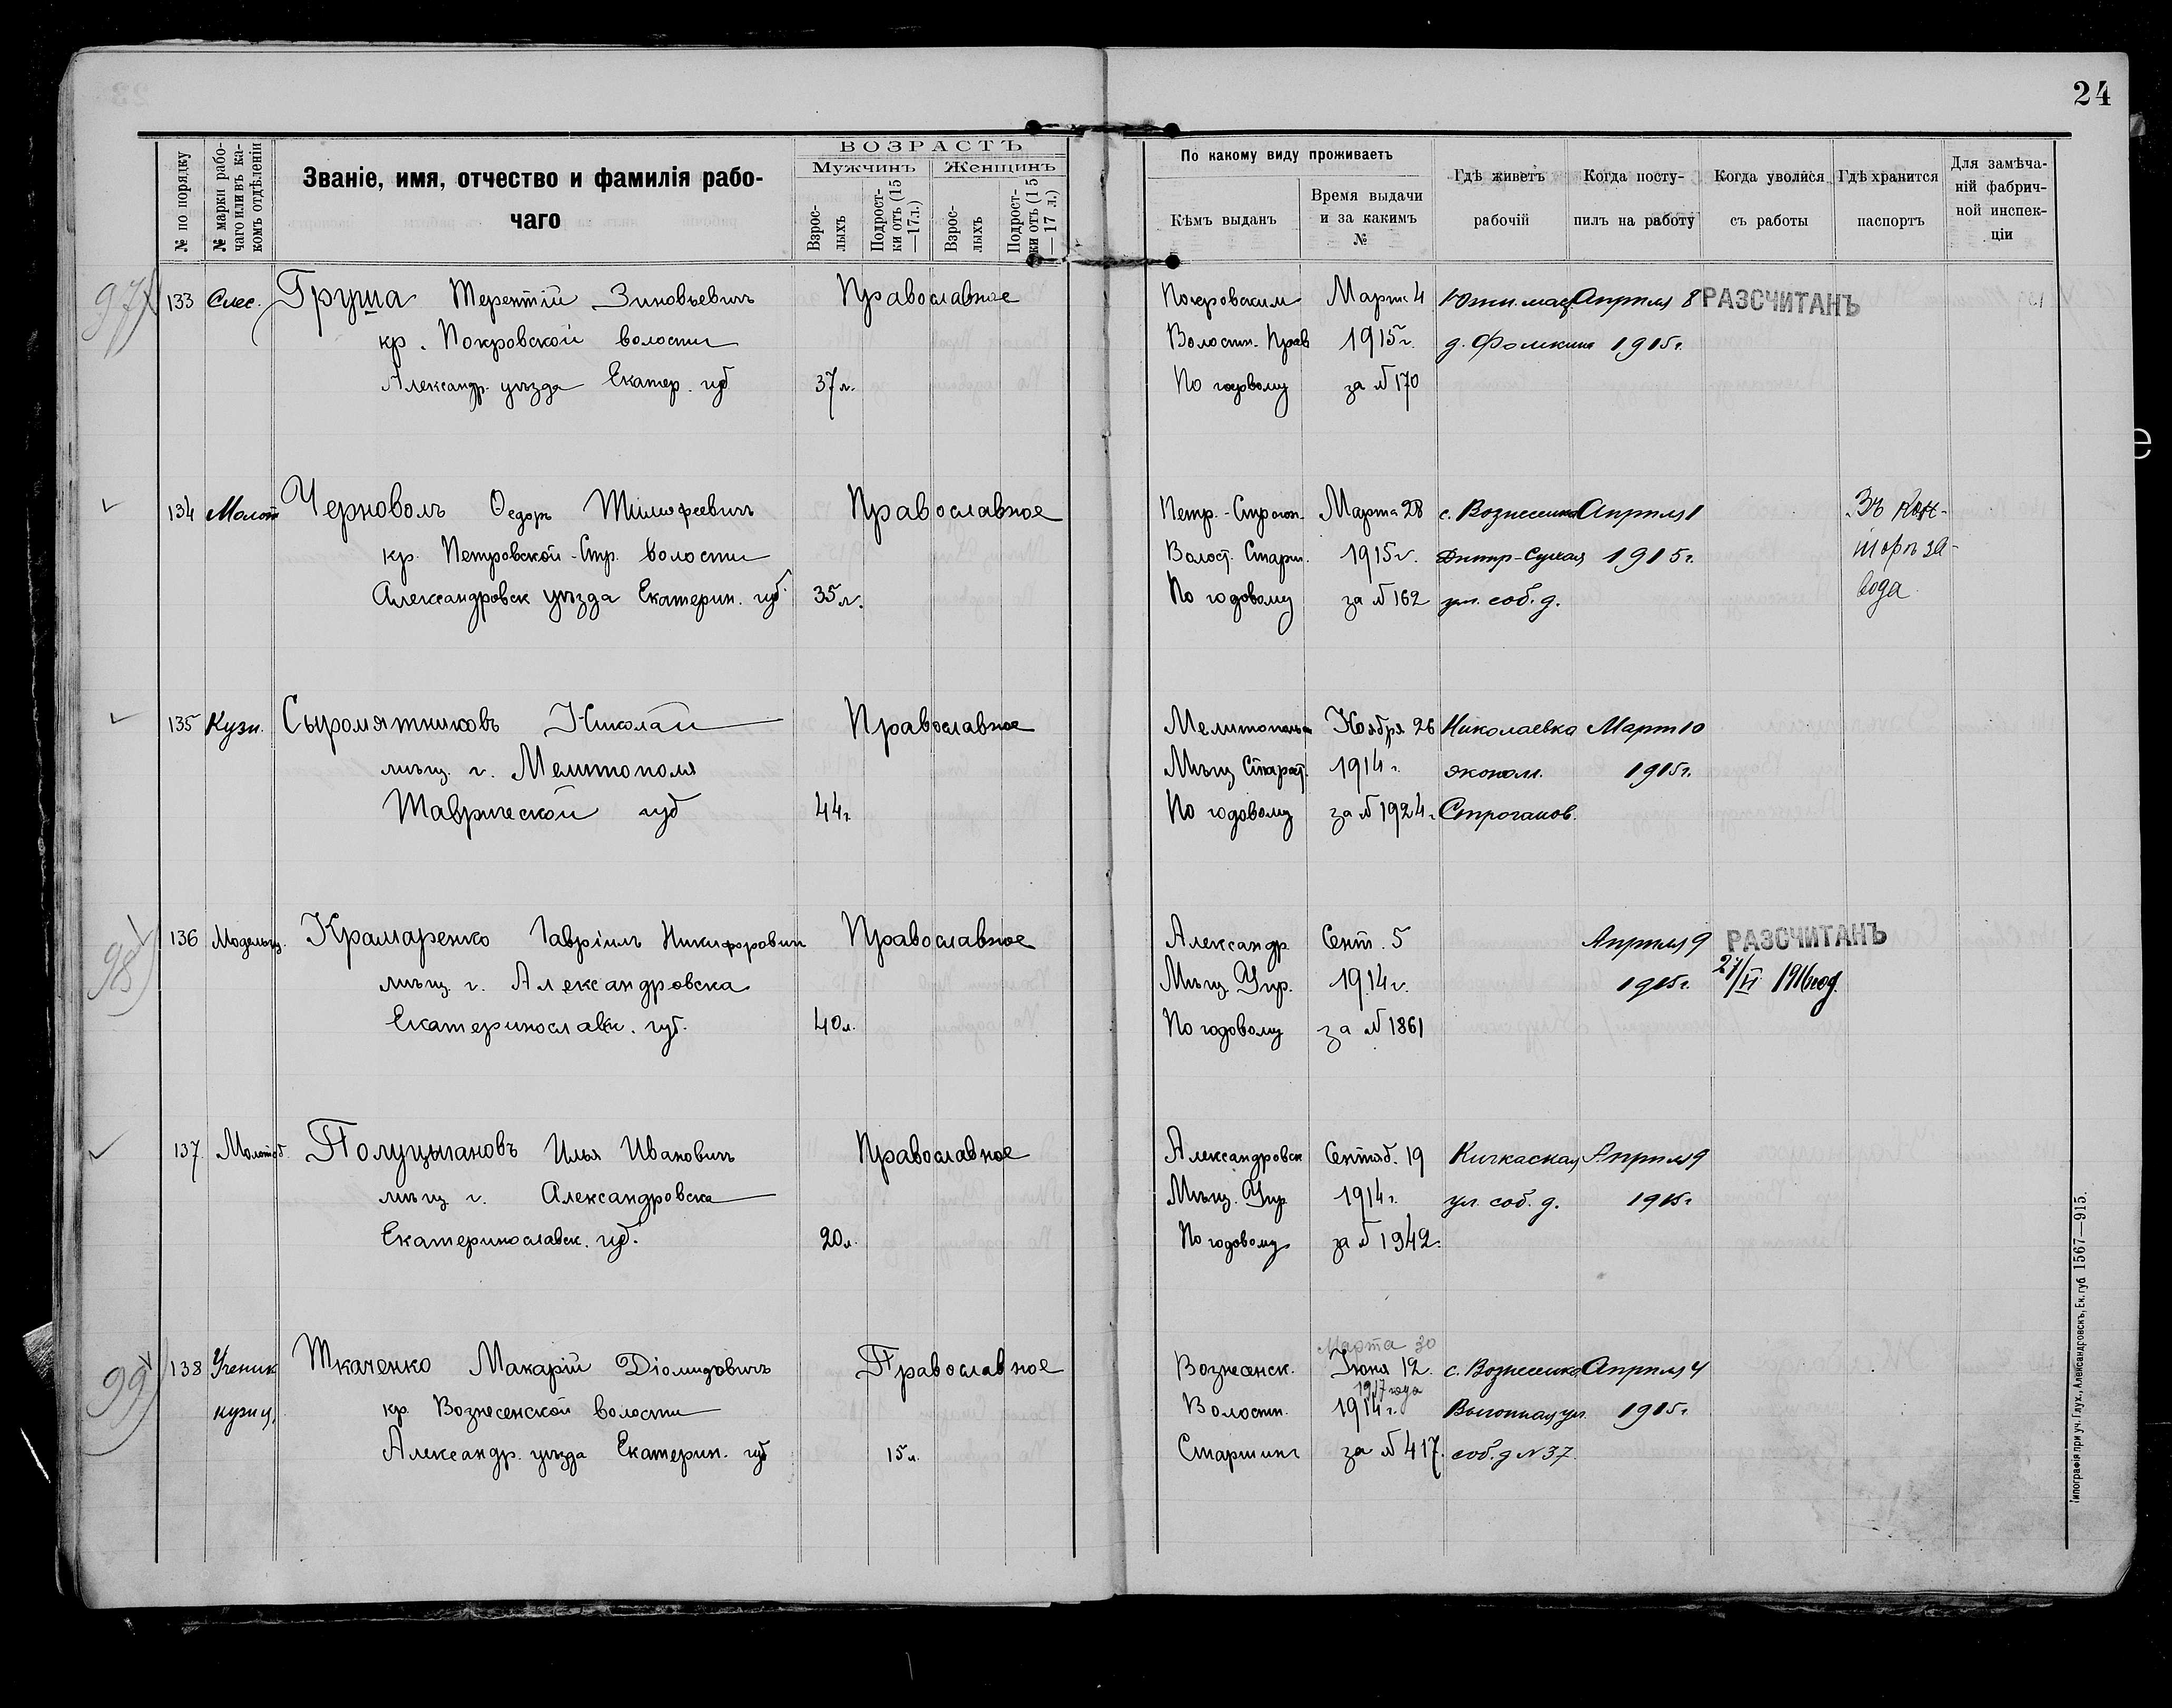 24
ВОЗРАСТЪ
Мужчинъ Женщинъ
№ по порядку
№ марки рабо-
чаго или въ ка-
комъ отдѣленіи
Званіе, имя, отчество и фамилія рабо-
чаго
Взрос-
лыхъ
Подрост-
ки отъ (15
—17л.)
Взрос-
лыхъ
Подрост-
ки отъ (15
— 17 л.)
По какому виду проживаетъ
Кѣмъ выданъ
Время выдачи
и за какимъ
№
Гдѣ живетъ
рабочій
Когда посту-
пилъ на работу
Когда уволися
съ работы
Гдѣ хранится
паспортъ
Для замѣча-
ній фабрич-
ной инспек-
ціи
97 133 Слес. Груша Терентій Зиновьевичъ Православное Покровским Март. 4 Апрѣля 8 РАЗСЧИТАНЪ
кр. Покровской волости Волостн. Прав 1915г. д. Фомкина 1915г.
Александр. уѣзда Екатер. губ 37л. По годовому за № 170
134 Молот Черноволъ Ѳедоръ Тимофеевичъ Православное Петр.-Строгон. Марта 28 с. Вознесенка Апрѣля 1 Въ кон-
кр. Петровской-Стр. волости Волост. Старш. 1915г. Днѣпр-Сухая 1915г. торѣ за-
Александровск уѣзда Екатерин. губ. 35л. По годовому за № 162 ул. соб. д. вода
135 Кузн. Сыромятниковъ Николай Православное Ноября 26 Николаевка Март 10
мѣщ. г. Мелитополя Мѣщ Старост. 1914г. эконом. 1915г.
Таврической губ 44г. По годовому за № 1924. Строганов.
98 136 Модельщ. Крамаренко Гавріилъ Никифорович Православное Александр. Сент. 5 Апрѣля 9 РАЗСЧИТАНЪ
мѣщ. г. Александровска Мѣщ. Упр. 1914г. 1915г. 27/VI 1916год.
Екатеринославск. губ. 40л. По годовому за № 1861
137. Молотоб Полуцыгановъ Илья Ивановичъ Православное Александровск Сентяб. 19 Кичкаская Апрѣля 9
мѣщ. г. Александровска Мѣщ. Упр 1914г. ул. соб. д. 1915г
Екатеринославск. губ. 20л. По годовому за № 1942.
Марта 30
99 138 Ученик Ткаченко Макарій Діомидовичъ Православное Вознесенск. Іюня 12. с. Вознесенка Апрѣля 4
1917 года
кузни. кр. Вознесенской волости Волостн. 1914г. Выгонная ул. 1915г.
Александр. уѣзда Екатерин. губ 15л. Старшина за № 417. соб. д № 37.
Типографія при уч. Глух., Александровскъ, Ек. губ 1567—915.